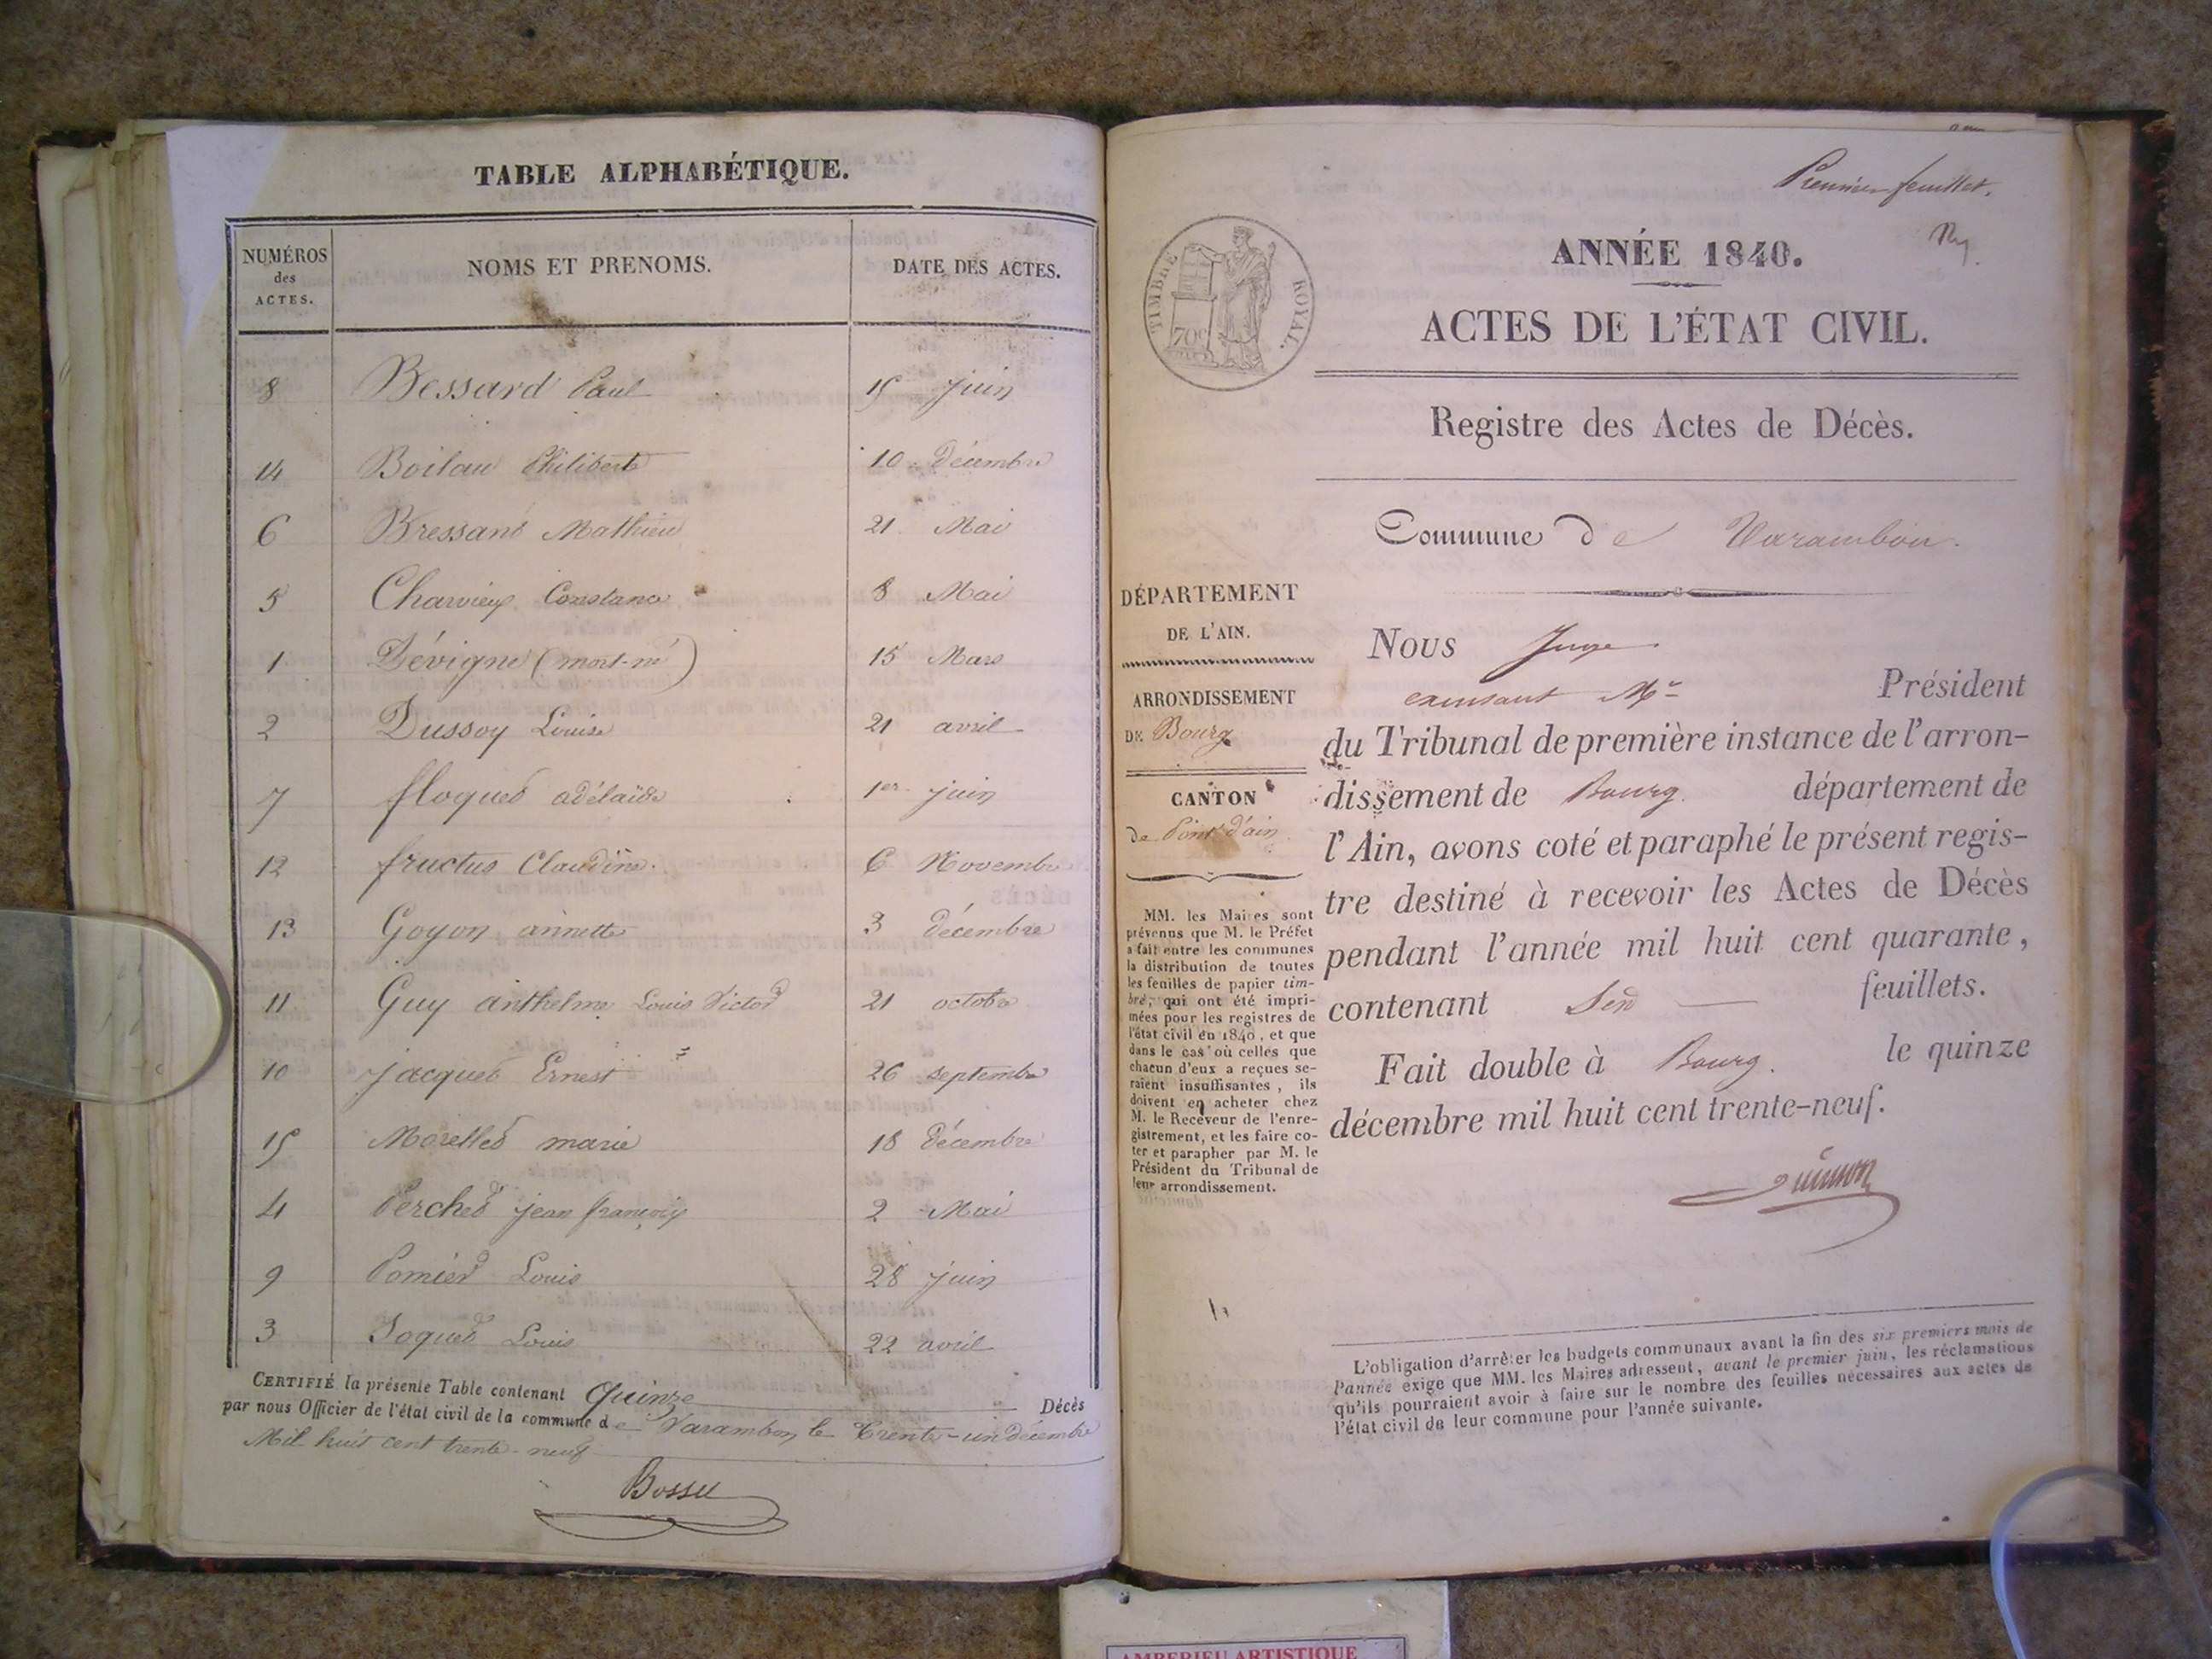 TABLE ALPHABÉTIQUE.
NUMÉROS des ACTES. NOMS ET PRENOMS. DATE DES ACTES.
8 Bessard Paul 15 juin
14 Boilau Philiberte 10 décembre
6 Bressand Mathieu 21 Mai
5 Charvieux Constance 8 Mai
1 Dévigne (mort-né) 15 Mars
2 Dussoy Louise 21 avril
7 floquet adélaïde 1er juin
12 fructus Claudine 6 Novembre
13 Goyon annette 3 décembre
11 Guy anthelme Louis Victor 21 octobre
10 jacquet Ernest 26 septembre
15 Morellet marie 18 décembre
4 Perchet jean françois 2 Mai
9 Pomier Louis 28 juin
3 Joquet Louis 22 avril
CERTIFIÉ la présente Table contenant Quinze Décès
par nous Officier de l'état civil de la commune de Varambon le Trente-un décembre
Mil huit cent trente-neuf
Bossu
Premier feuillet.
TIMBRE ROYAL.
70c
ANNÉE 1840.
ACTES DE L'ÉTAT CIVIL.
Registre des Actes de Décès.
Commune de Varambon.
DÉPARTEMENT
DE L'AIN.
ARRONDISSEMENT
DE Bourg
CANTON
de Pont d'ain
MM. les Maires sont
prévenus que M. le Préfet
a fait entre les communes
la distribution de toutes
les feuilles de papier tim-
bré, qui ont été impri-
mées pour les registres de
l'état civil en 1840, et que
dans le cas où celles que
chacun d'eux a reçues se-
raient insuffisantes, ils
doivent en acheter chez
M. le Receveur de l'enre-
gistrement, et les faire co-
ter et parapher par M. le
Président du Tribunal de
leur arrondissement.
Nous Juge
Mr Président
du Tribunal de première instance de l'arron-
dissement de Bourg département de
l'Ain, avons coté et paraphé le présent regis-
tre destiné à recevoir les Actes de Décès
pendant l'année mil huit cent quarante,
contenant feuillets.
Fait double à Bourg. le quinze
décembre mil huit cent trente-neuf.
L'obligation d'arrêter les budgets communaux avant la fin des six premiers mois de
l'année exige que MM. les Maires adressent, avant le premier juin, les réclamations
qu'ils pourraient avoir à faire sur le nombre des feuilles nécessaires aux actes de
l'état civil de leur commune pour l'année suivante.
AMBERIEU ARTISTIQUE